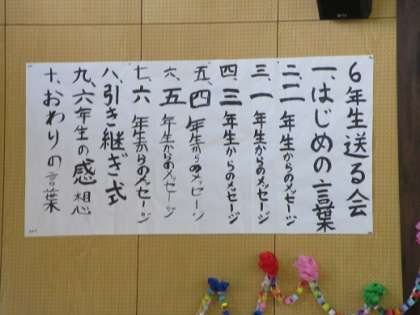 6年生送る会
一、はじめの言葉
二、二年生からのメッセージ
三、一年生からのメッセージ
四、三年生からのメッセージ
五、四年生からのメッセージ
六、五年生からのメッセージ
七、六年生からのメッセージ
八、引き継ぎ式
九、六年生の感想
十、おわりの言葉